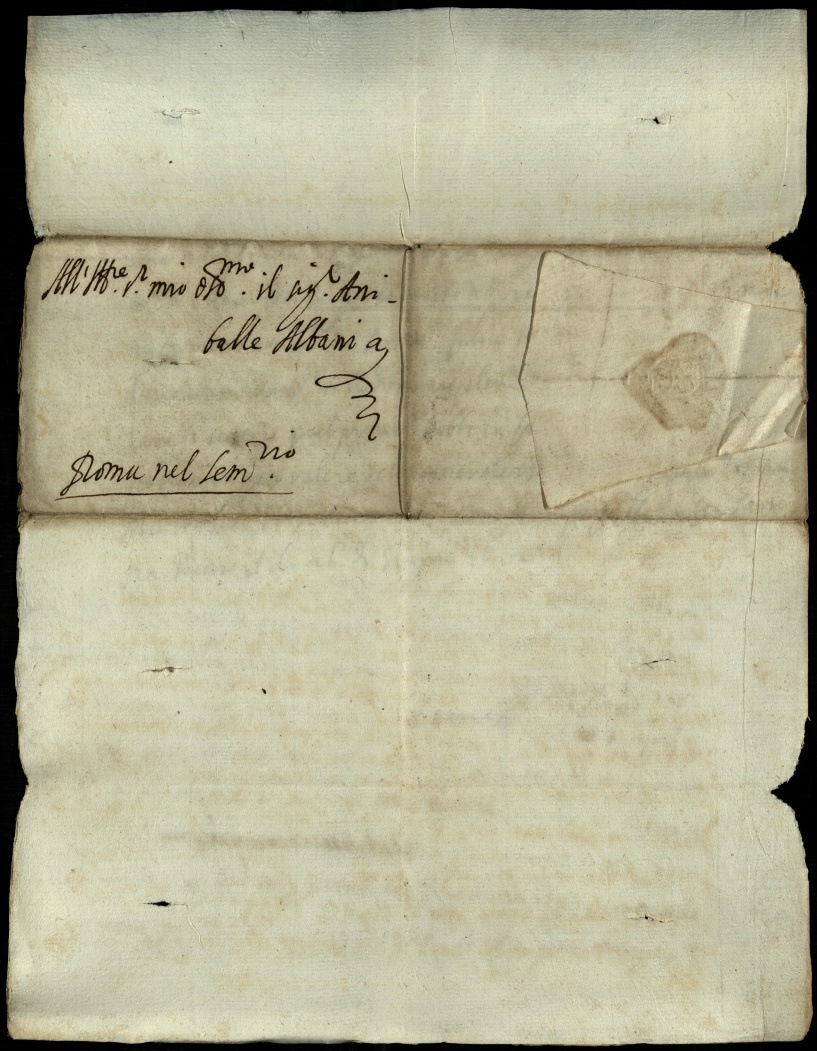 All' Ill.re s.r mio oss.mo il sig.r Ani-
balle Albani a
Roma nel Sem.rio